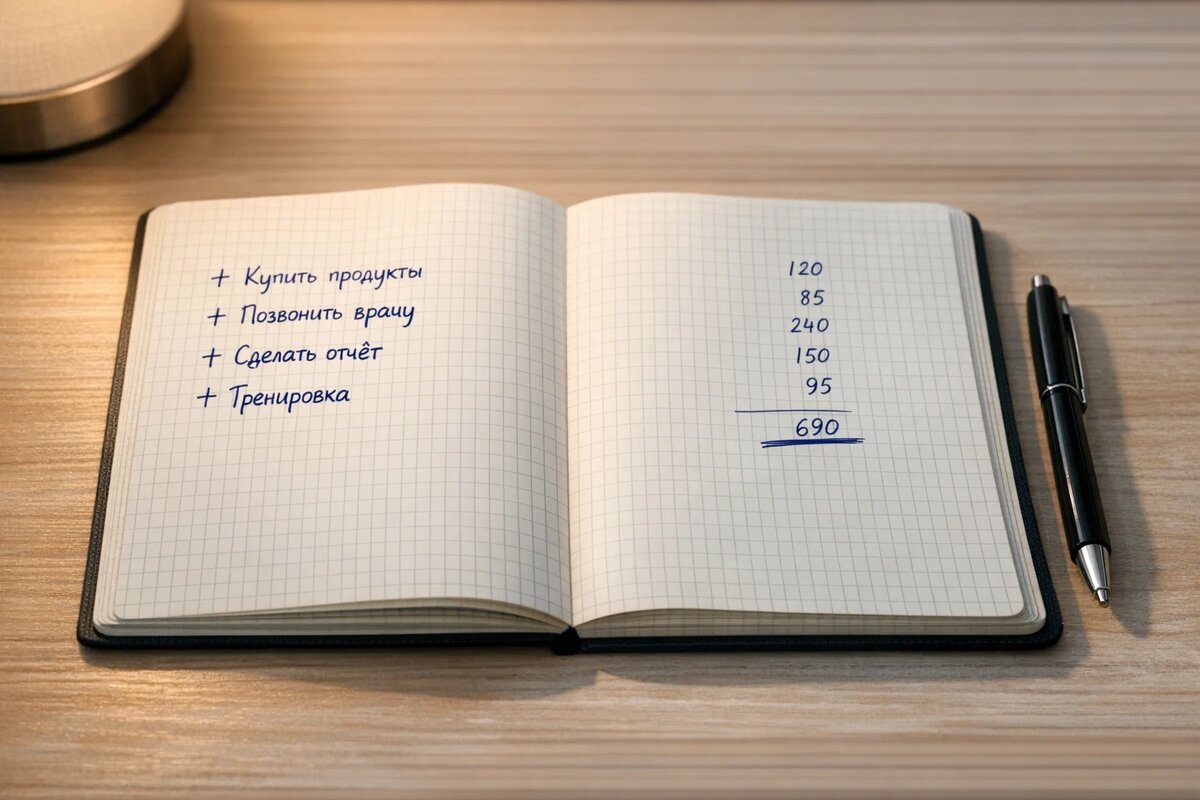 + Купить продукты
+ Позвонить врачу
+ Сделать отчёт
+ Тренировка
120
85
240
150
95
690